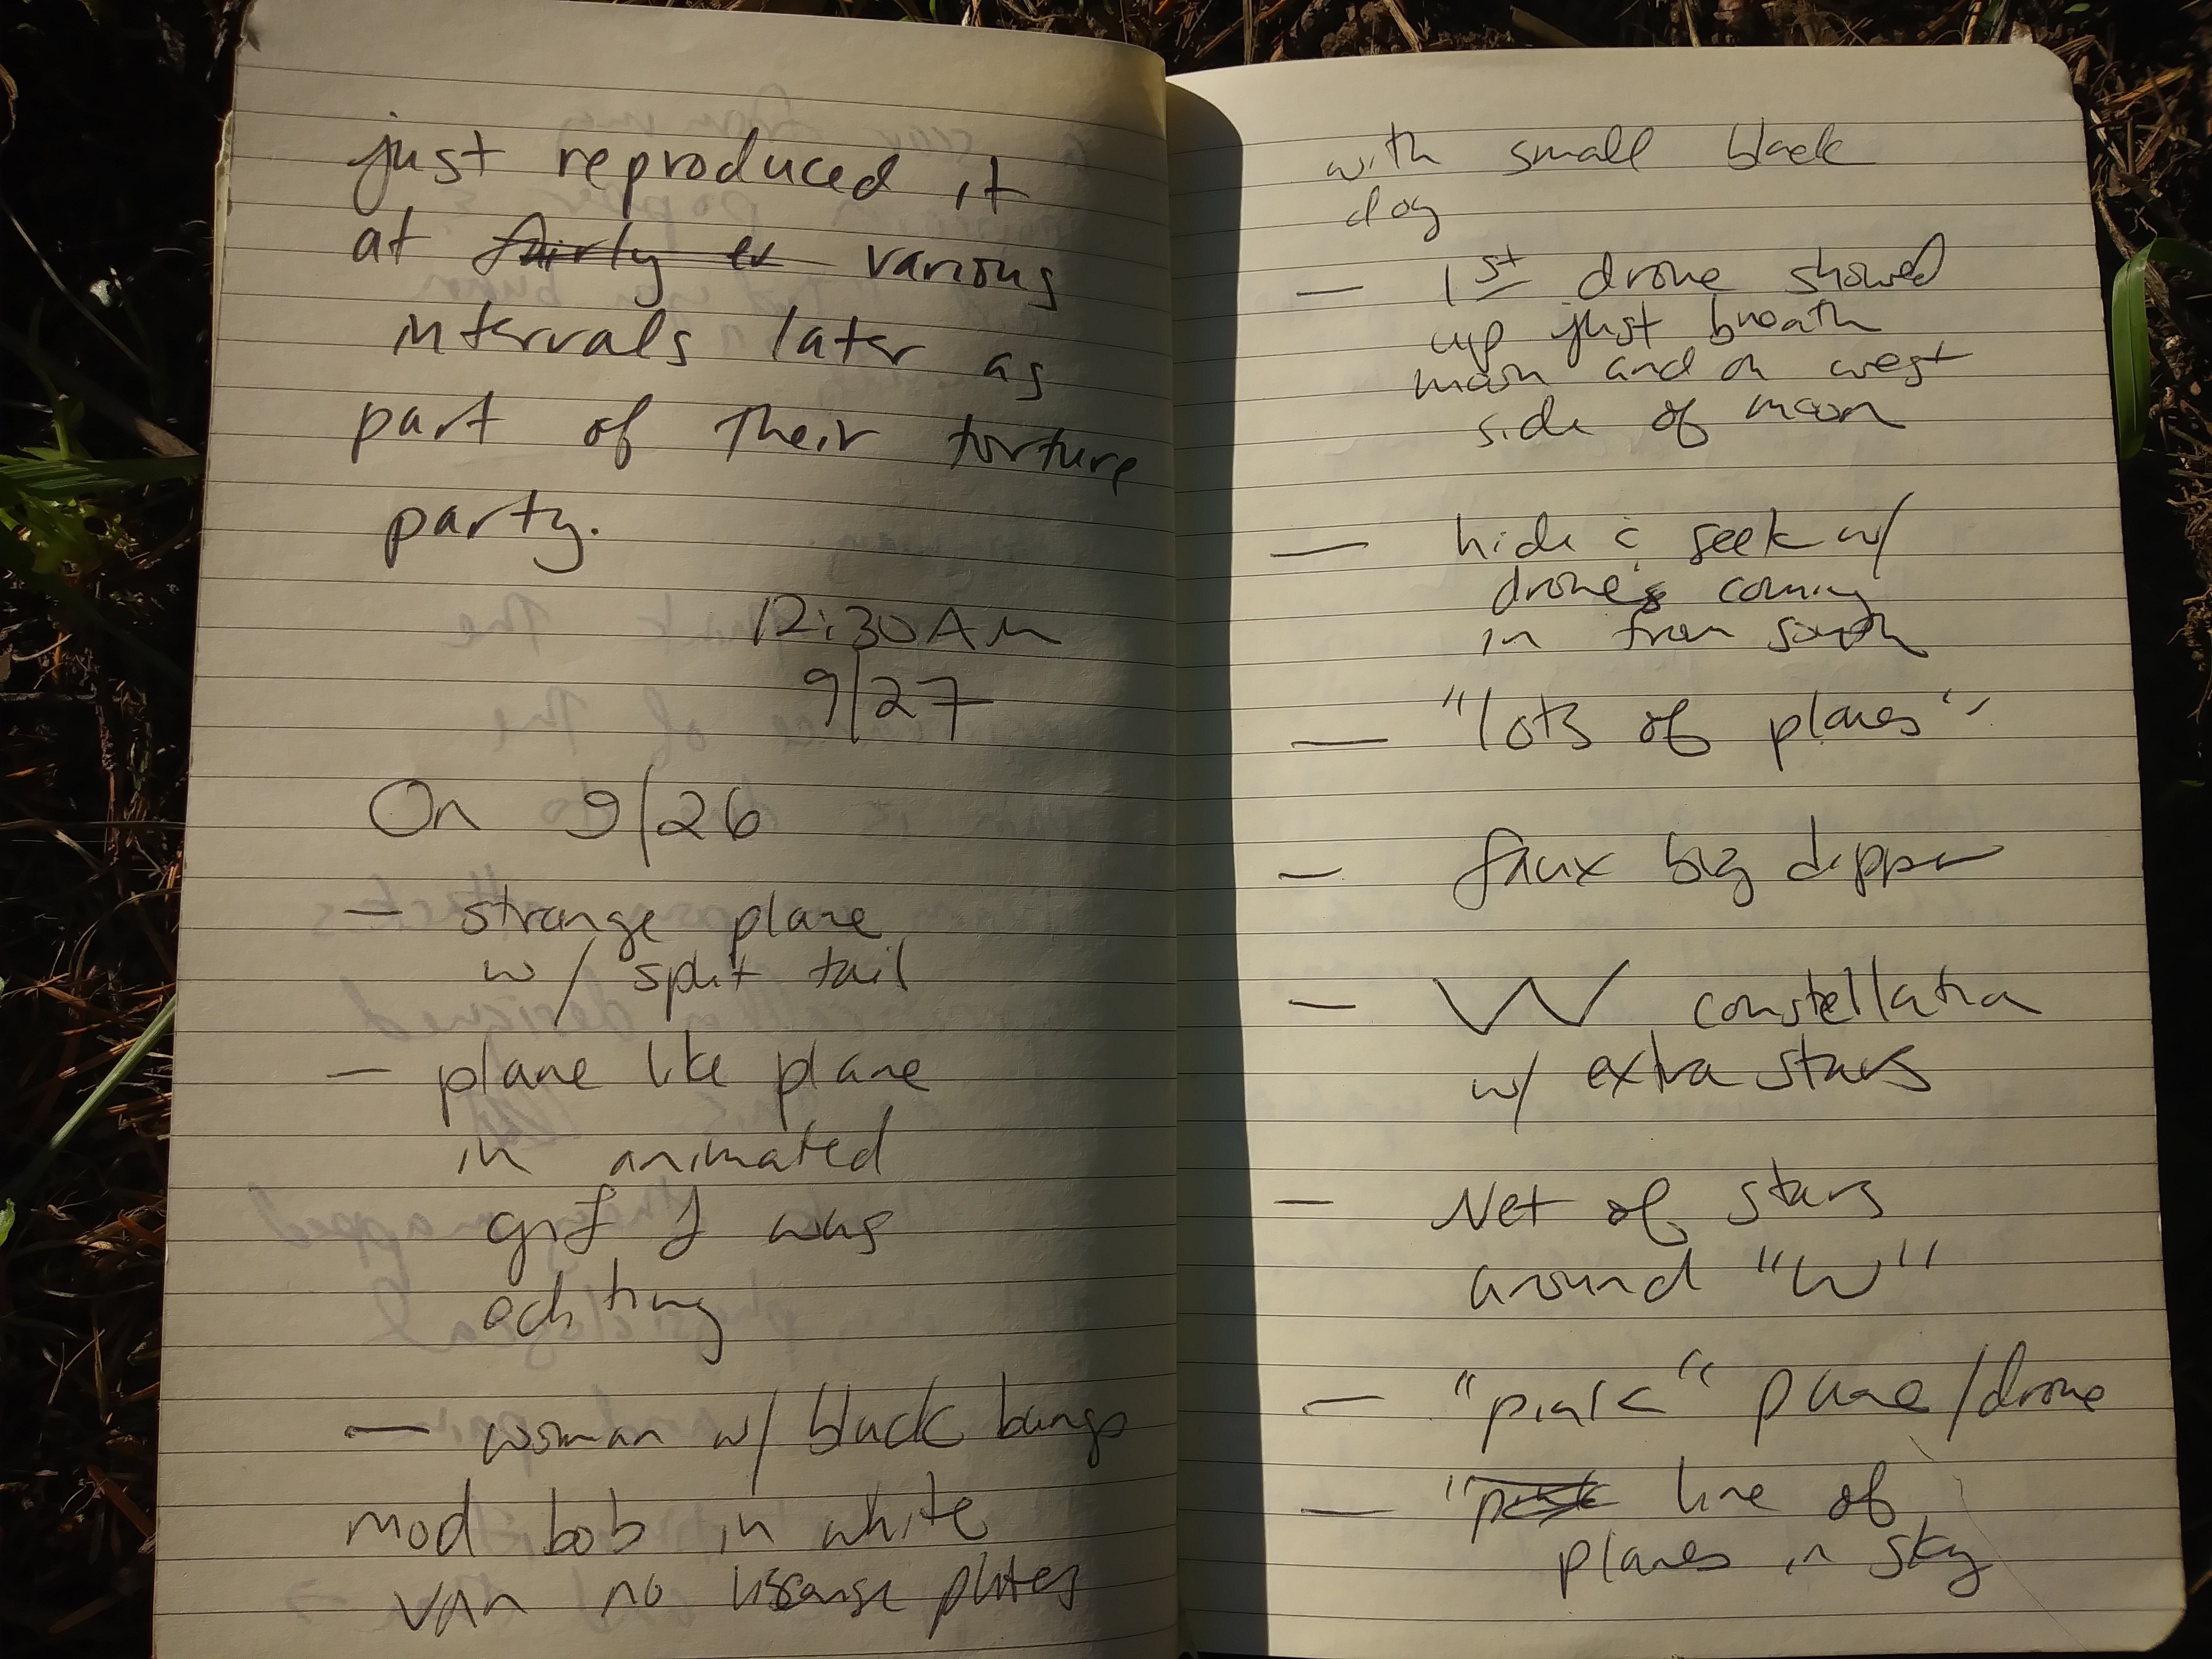 just reproduced it
at fairly ev various
intervals later as
part of their torture
party.
12:30 AM
9/27
On 9/26
— strange plane
w/ split tail
— plane like plane
in animated
gif I was
editing
— woman w/ black bangs
mod bob in white
van no license plates
with small black
dog
— 1st drone showed
up just bneath
moon and on west
side of moon
— hide & seek w/
drones coming
in from south
— "lots of planes"
— faux big dipper
— W constellation
w/ extra stars
— Net of stars
around "W"
— "pink" plane/drone
— "pink line of
planes in sky